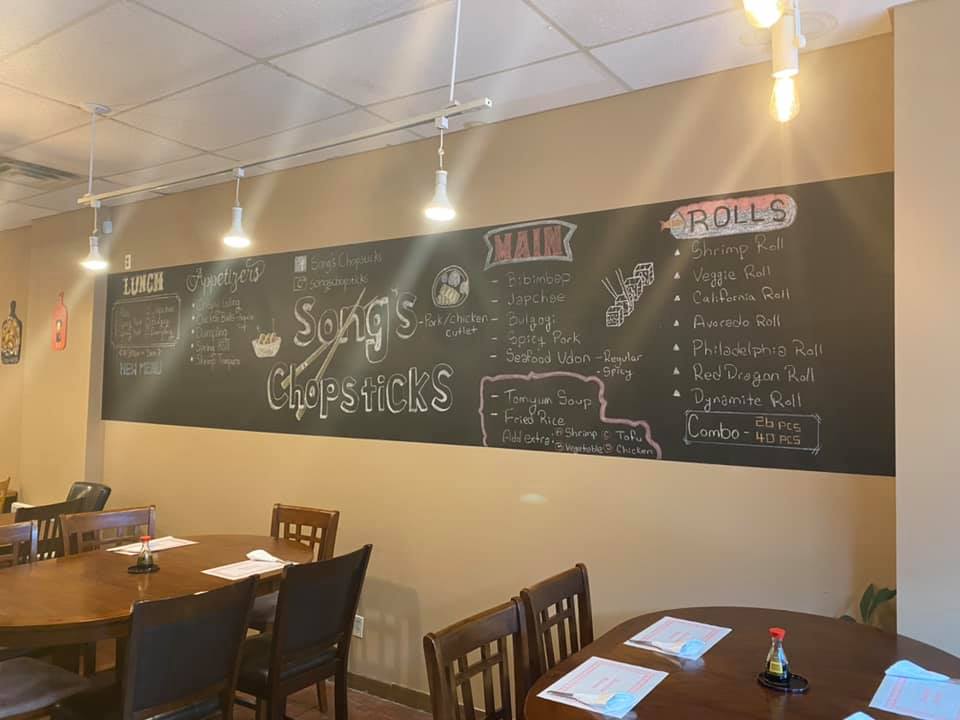 LUNCH
NEW MENU
Appetizers
Spring Roll
Dumpling
Song's Chopsticks
songschopsticks
Song's
Chopsticks
- Pork/chicken
cutlet
MAIN
- Bibimbap
- Japchae
- Bulgogi
- Spicy Pork
- Seafood Udon - Regular
- Spicy
- Tomyum Soup
- Fried Rice
Add extra: ① Shrimp ② Tofu
③ Vegetable ④ Chicken
ROLLS
Shrimp Roll
Veggie Roll
California Roll
Avocado Roll
Philadelphia Roll
Red Dragon Roll
Dynamite Roll
Combo - 26 PCS
40 PCS